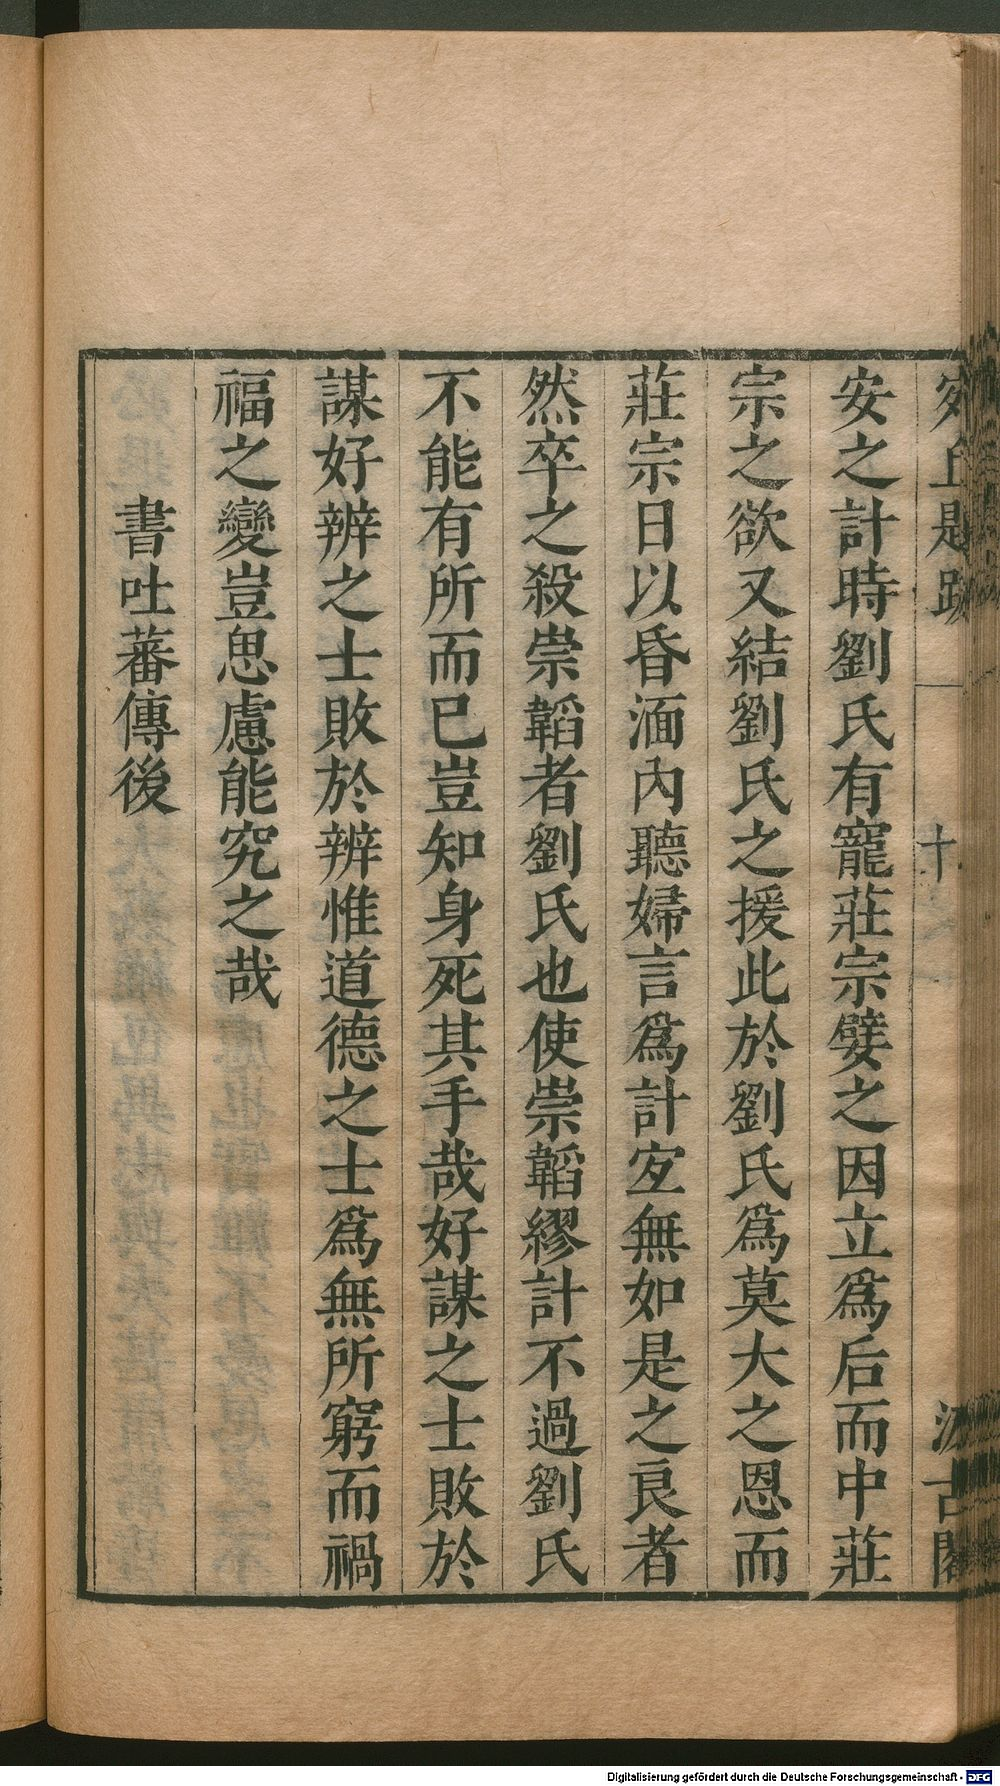 宛丘題跋 十 汲古閣
安之計時劉氏有寵莊宗嬖之因立爲后而中莊
宗之欲又結劉氏之援此於劉氏爲莫大之恩而
莊宗日以昏湎內聽婦言爲計宐無如是之良者
然卒之殺崇韜者劉氏也使崇韜繆計不過劉氏
不能有所而已豈知身死其手哉好謀之士敗於
謀好辨之士敗於辨惟道德之士爲無所窮而禍
福之變豈思慮能究之哉
書吐蕃傳後
Digitalisierung gefördert durch die Deutsche Forschungsgemeinschaft - DFG